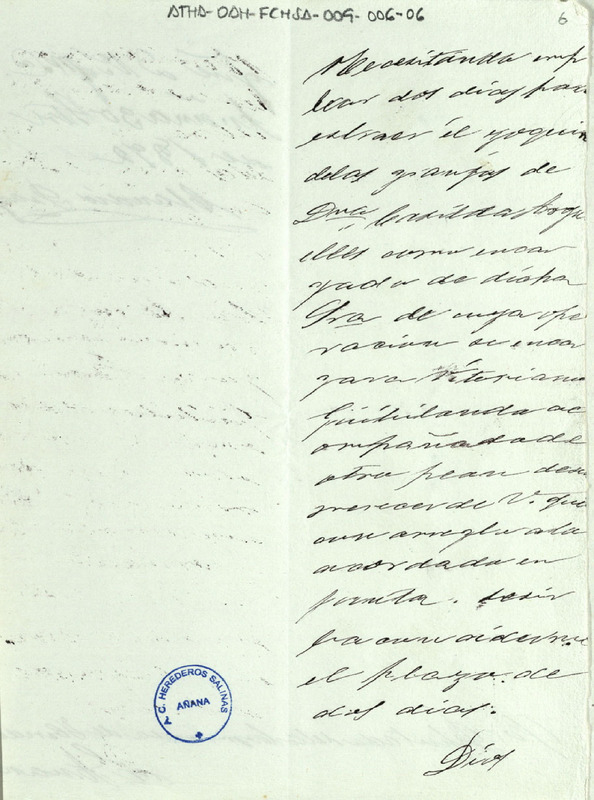 ATHA-DAH-FCHSA-009-006-06
6
Necesitando emp
lear dos dias para
extraer el
de las granjas de
Dna Casildas Argu
elles como encar
gado de dicha
Sra de cuya ope
racion se encar
gara Vitoriano
Guinilanda ac
ompañado de
otro peon
de V. que
con arreglo a lo
acordado en
junta.
ba concederme
el plazo de
dos dias.
Dios
C. HEREDEROS SALINAS
AÑANA